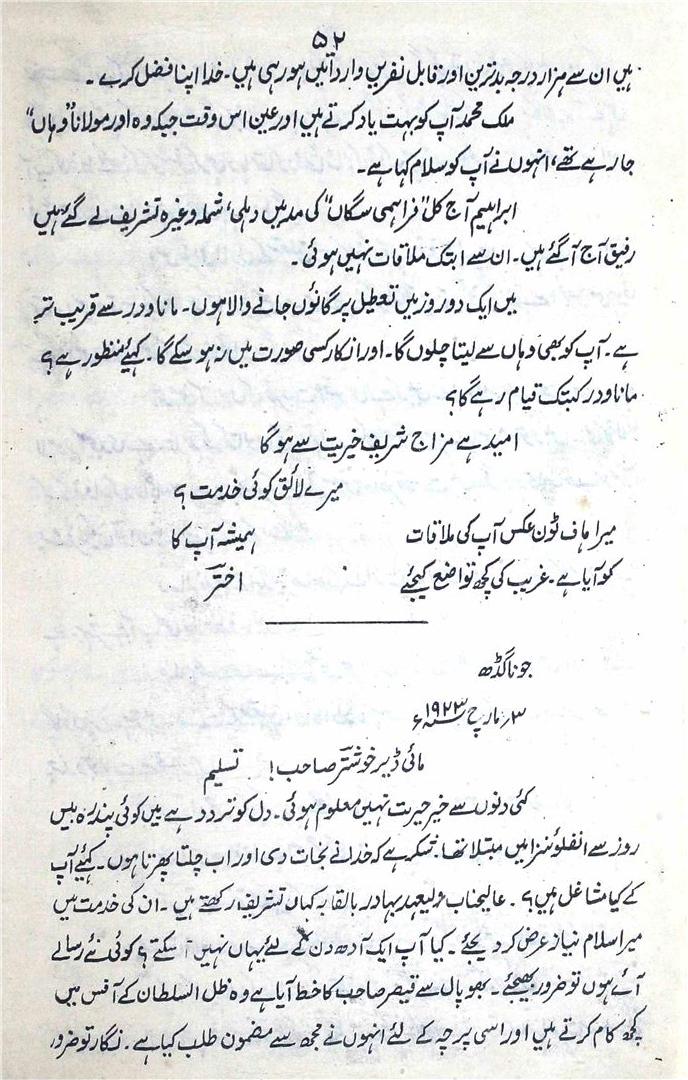 ۵۲
ہیں ان سے ہزار درجہ بدترین اور قابل نفریں وارداتیں ہو رہی ہیں۔ خدا اپنا فضل کرے۔
ملک محمد آپ کو بہت یاد کرتے ہیں اور عین اس وقت جبکہ وہ اور مولانا "وہاں"
جا رہے تھے، انہوں نے آپ کو سلام کہا ہے۔
ابراہیم آج کل "فراہمی سگاں" کی مد میں دہلی، شملہ وغیرہ تشریف لے گئے ہیں
رفیق آج آ گئے ہیں۔ ان سے ابتک ملاقات نہیں ہوئی۔
میں ایک دو روز میں تعطیل پر گانوں جانے والا ہوں۔ ماناودر سے قریب تر
ہے۔ آپ کو بھی وہاں سے لیتا چلوں گا۔ اور انکار کسی صورت میں نہ ہو سکے گا۔ کہئے منظور ہے؟
ماناودر کبتک قیام رہے گا؟
امید ہے مزاج شریف خیریت سے ہو گا
میرے لائق کوئی خدمت؟
میرا ہاف ٹون عکس آپ کی ملاقات ہمیشہ آپ کا
کو آیا ہے۔ غریب کی کچھ تواضع کیجئے اخترؔ
جوناگڈھ
۳؍ مارچ ۱۹۲۳ء
مائی ڈیر خوشترؔ صاحب! تسلیم
کئی دنوں سے خیر خیریت نہیں معلوم ہوئی۔ دل کو تردد ہے میں کوئی پندرہ بیس
روز سے انفلوئنزا میں مبتلا تھا۔ شکر ہے کہ خدا نے نجات دی اور اب چلتا پھرتا ہوں۔ کہئے آپ
کے کیا مشاغل ہیں؟۔ عالیجناب ولیعہد بہادر بالقابہ کہاں تشریف رکھتے ہیں۔ ان کی خدمت میں
میرا سلام نیاز عرض کر دیجئے۔ کیا آپ ایک آدھ دن کے لئے یہاں نہیں آ سکتے؟ کوئی نئے رسالے
آئے ہوں تو ضرور بھیجئے۔ بھوپال سے قیصر صاحب کا خط آیا ہے وہ ظل السلطان کے آفس میں
کچھ کام کرتے ہیں اور اسی پرچہ کے لئے انہوں نے مجھ سے مضمون طلب کیا ہے۔ نگار تو ضرور